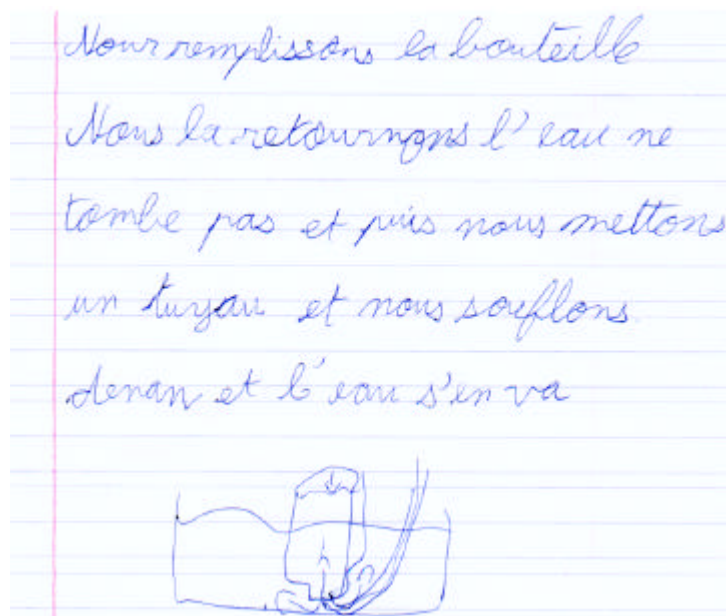 Nous remplissons la bouteille
Nous la retournons l'eau ne
tombe pas et puis nous mettons
un tuyau et nous souflons
denan et l'eau s'en va